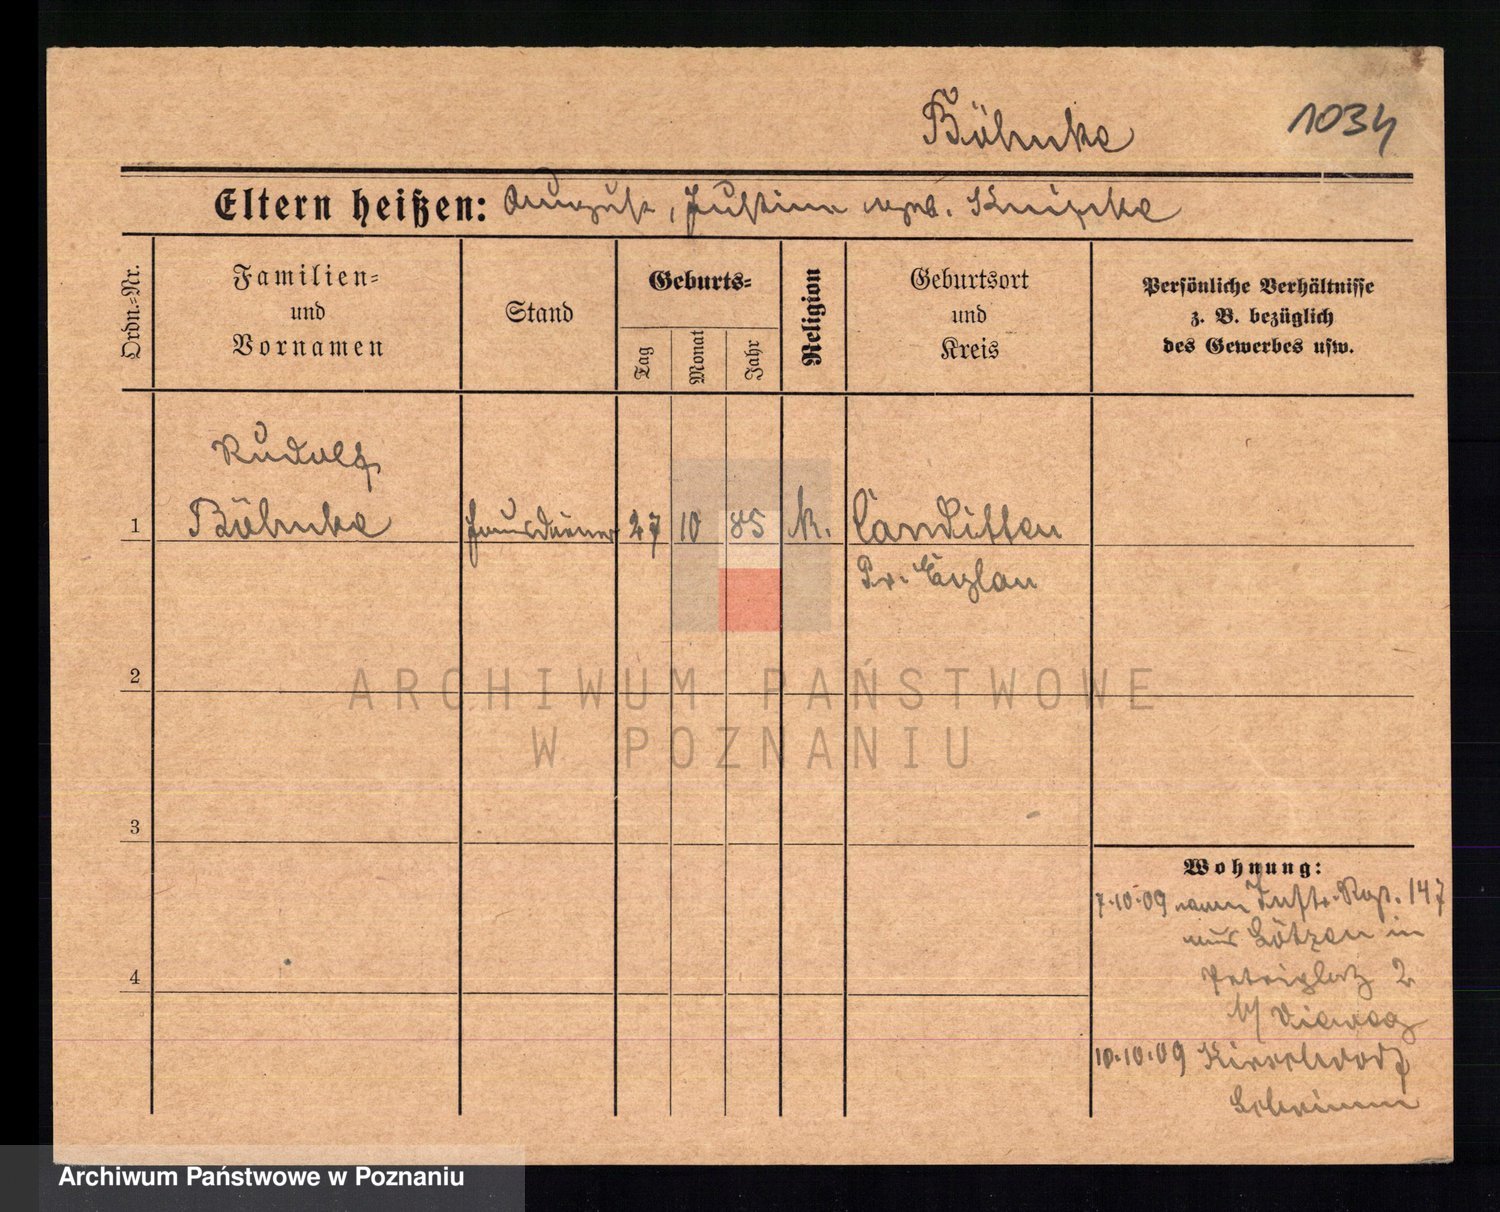 Böhnke 1034
Eltern heißen: August, Justine geb. Knipke
Ordn.-Nr.
Familien-
und
Vornamen
Stand
Geburts-
Tag
Monat
Jahr
Religion
Geburtsort
und
Kreis
Persönliche Verhältnisse
z. B. bezüglich
des Gewerbes usw.
Rudolf
1 Böhnke Hausdiener 27 10 85 K. Canditten
Pr. Eylau
2
ARCHIWUM PAŃSTWOWE
W POZNANIU
3
Wohnung:
7.10.09 vom Inftr. Rgt. 147
aus Lötzen in
Petriplatz 2
b/ Vieweg
4
10.10.09 Kirschdorf
Schrimm
Archiwum Państwowe w Poznaniu